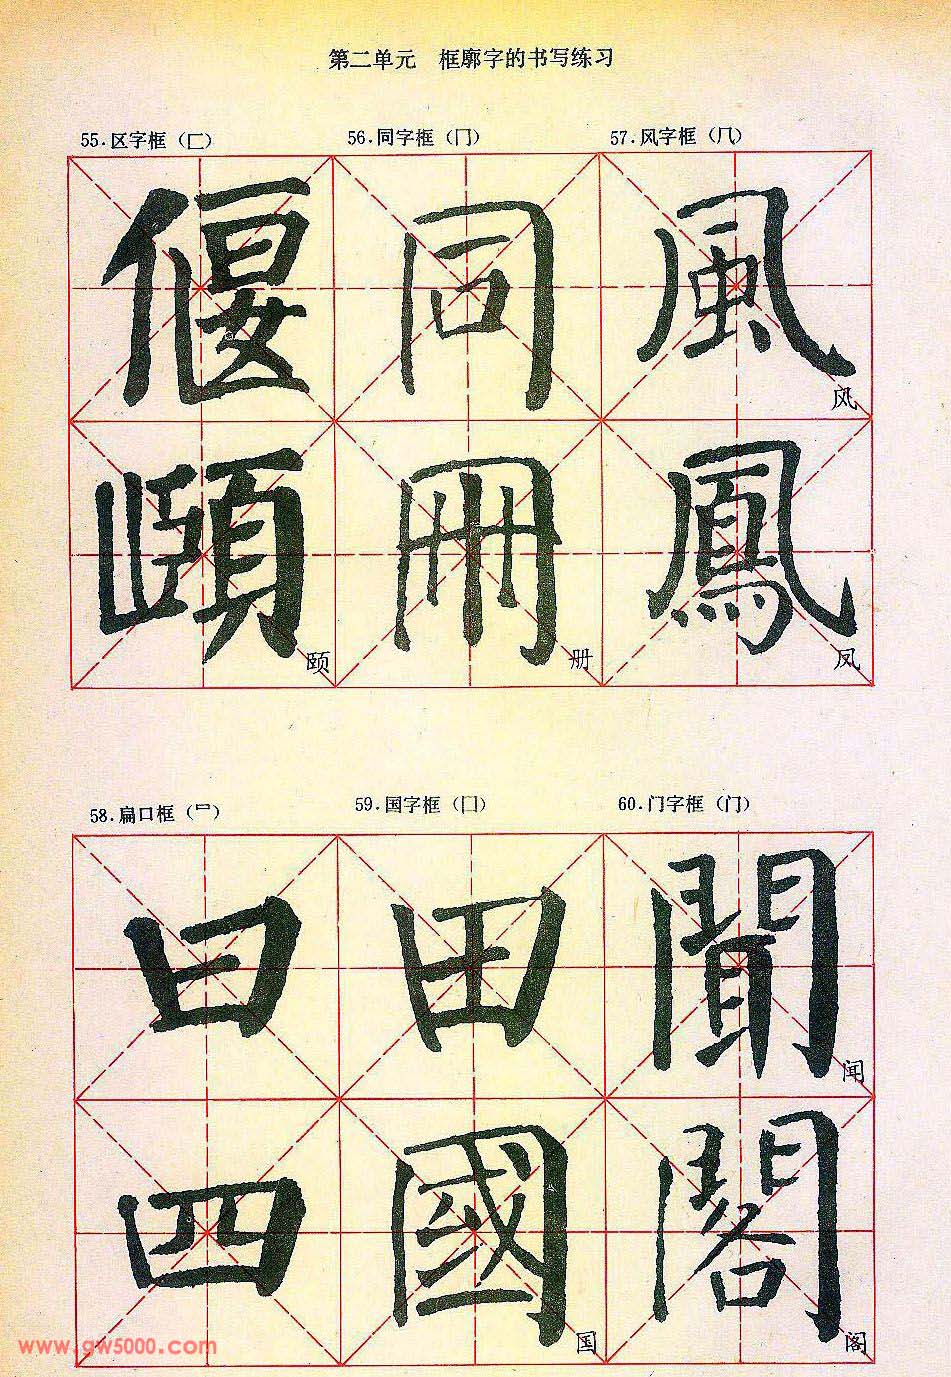 第二单元 框廓字的书写练习
55.区字框（匚） 56.同字框（冂） 57.风字框（⺇）
偃 同 風
风
頤 冊 鳳
颐 册 凤
58.扁口框（罒） 59.国字框（囗） 60.门字框（门）
曰 田 聞
闻
四 國 閣
国 阁
www.gw5000.com